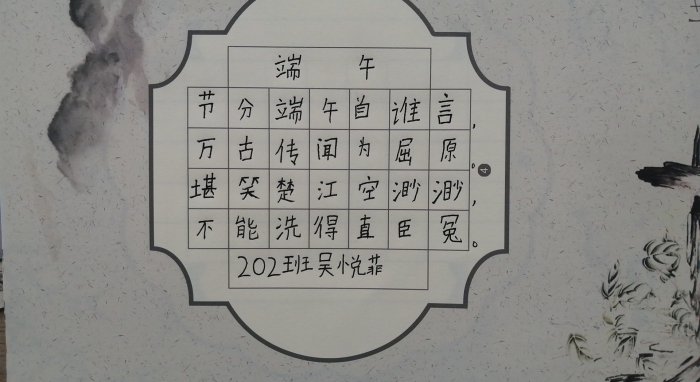 端午
节分端午自谁言,
万古传闻为屈原。
堪笑楚江空渺渺,
不能洗得直臣冤。
202班吴悦菲
4